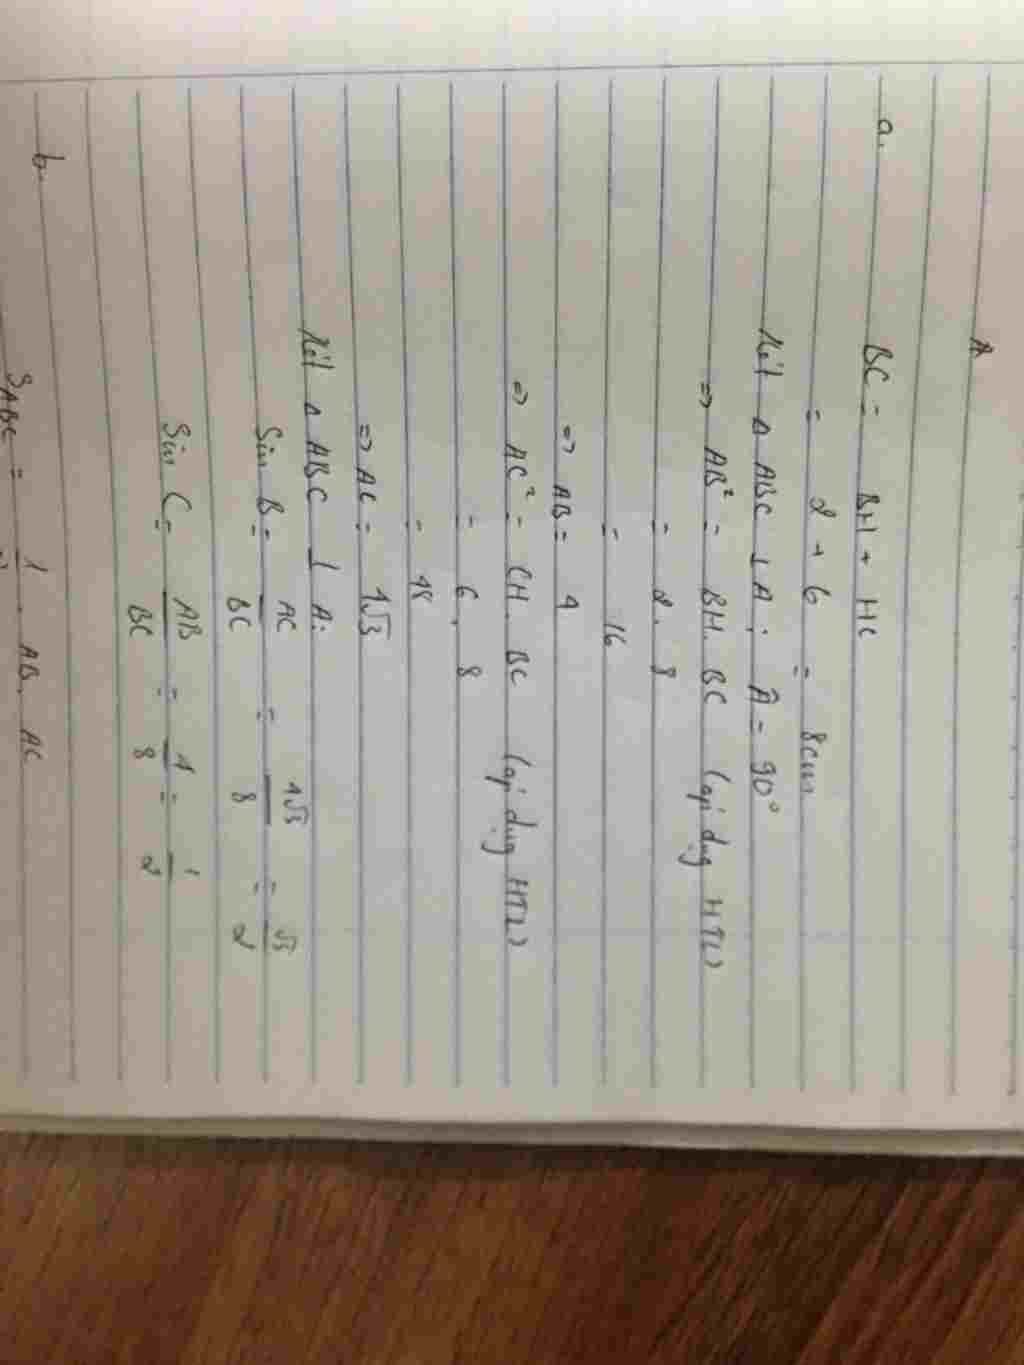 A
a. BC = BH + HC
= 2 + 6 = 8cm
Xét Δ ABC ⊥ A; Â = 90°
=> AB² = BH. BC (áp dụg HTL)
= 2. 8
= 16
=> AB = 4
=> AC² = CH. BC (áp dụg HTL)
= 6. 8
= 48
=> AC = 4√3
Xét Δ ABC ⊥ A:
Sin B = AC/BC = 4√3/8 = √3/2
Sin C = AB/BC = 4/8 = 1/2
b. S_ABC = 1/2 . AB. AC